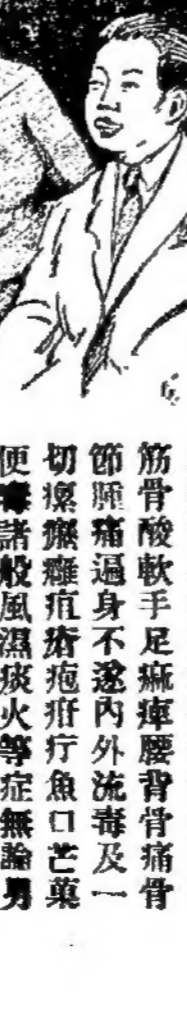 筋骨酸軟手足痲痺腰背骨痛骨
節腫痛過身不遂內外流毒及一
切瘰癧癰疽瘡疱疳疔魚口芒菓
便毒諸般風濕痰火等症無論男